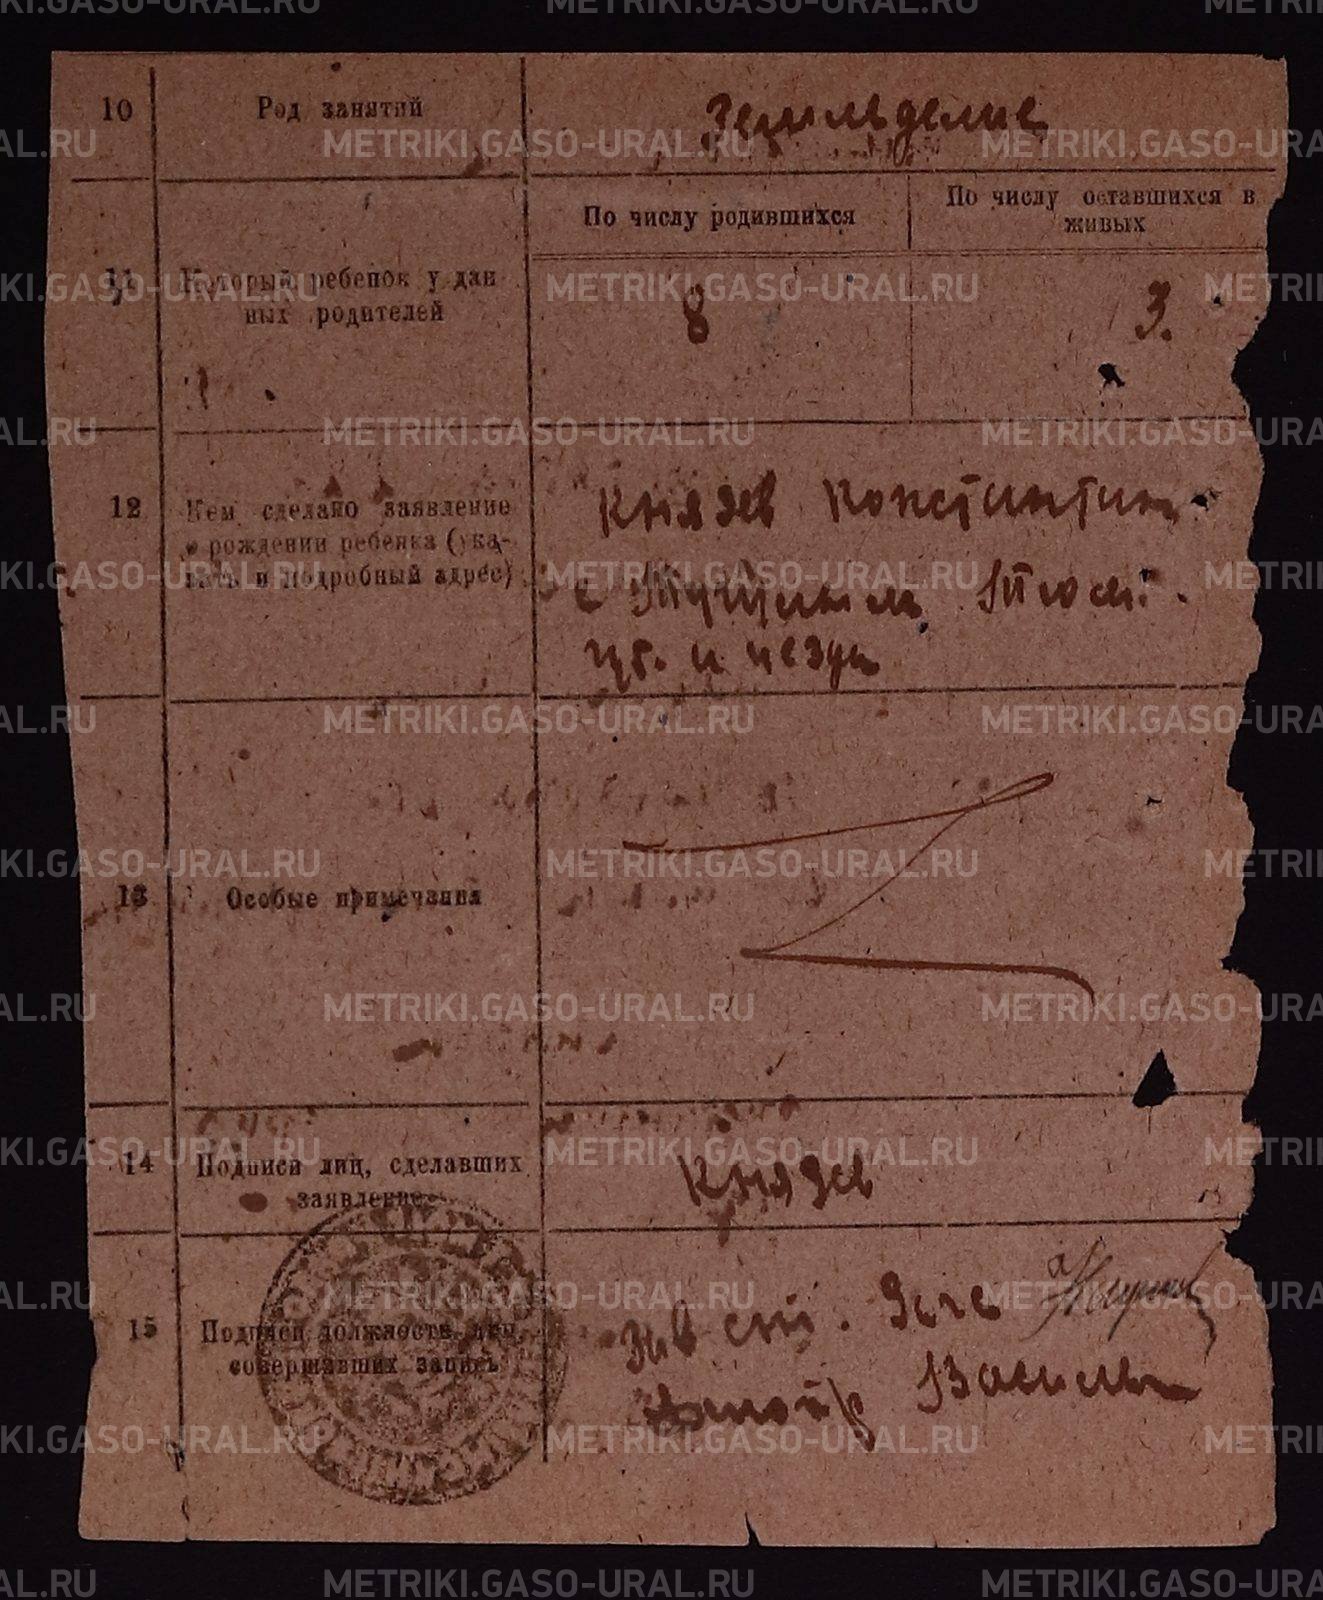 10 Род занятий Земильделие
По числу родившихся По числу оставшихся в живых
11 Который ребенок у дан
ных родителей
8 3.
12 Кем сделано заявление
о рождении ребенка (ука-
зать и подробный адрес)
Князев Констинтин
с Тугулым Тюм.
губ. и уезда
13 Особые примечания
14 Подписи лиц, сделавших
заявление
Князев
15 Подписи должностн. лиц,
совершавших запись
Зав ст. Загс
METRIKI.GASO-URAL.RU